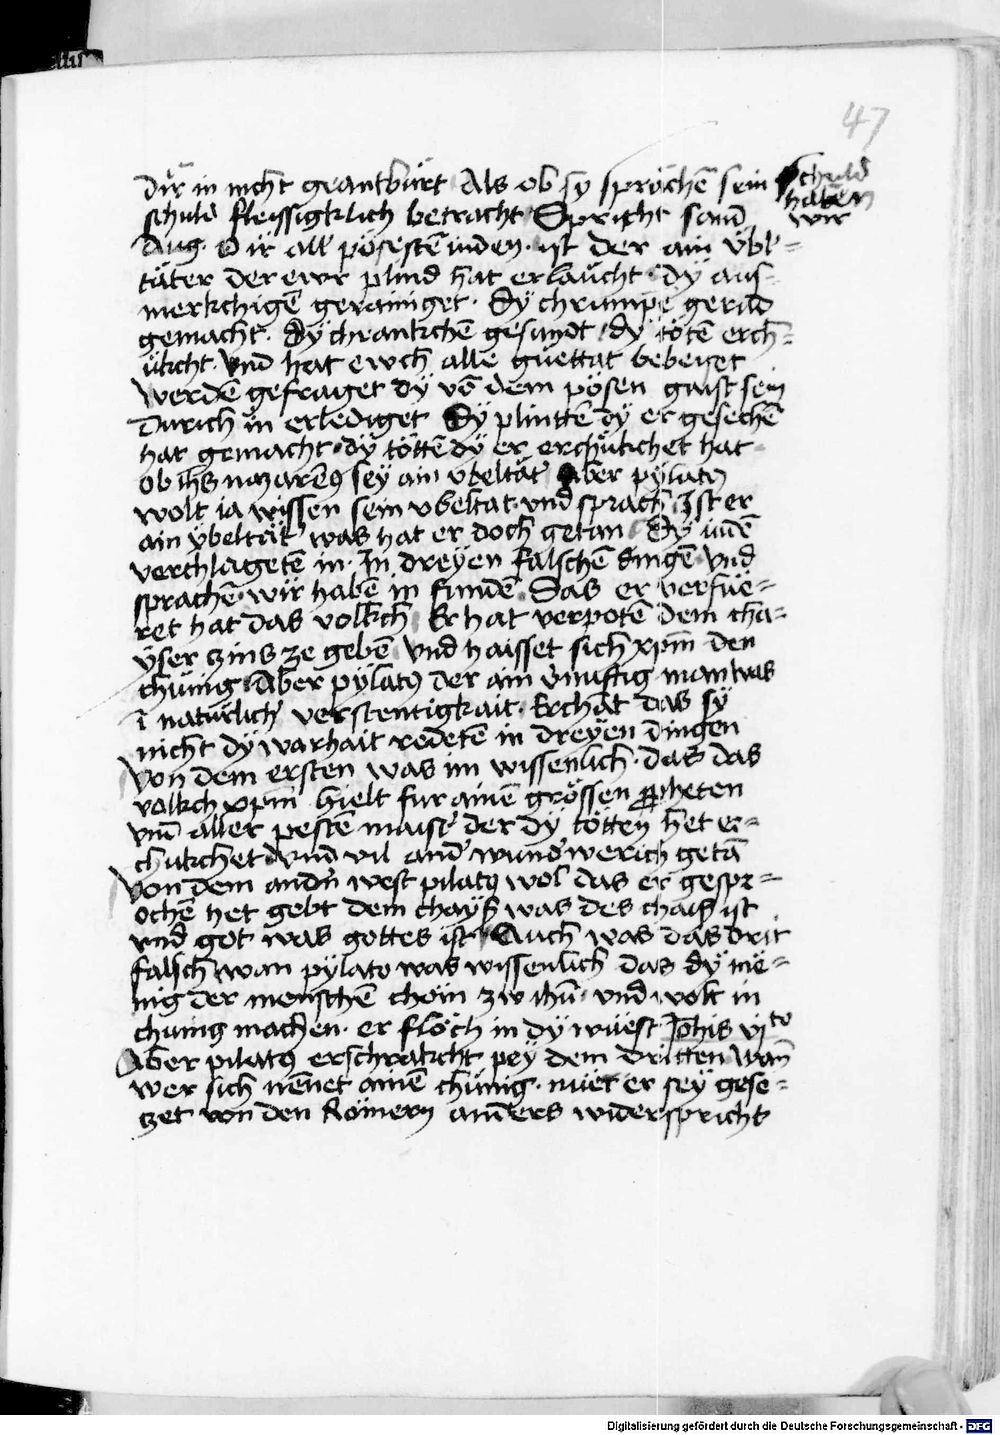 47
dir in nicht geantbürt Als ob sy sprächē sein schuld
haben
wir
schuld fleissigklich betracht Spricht sand
Aug. O ir all pösestē iuden. ist der ain übl=
täter der ewr plind hat erlaücht. dÿ aus=
merkchigē gerainiget. Dÿ chrumpē gerad
gemacht. dÿ chrankchē gesundt. dÿ tötē erch=
ükcht. vnd hat ewch alle guettat beweiset
werdē gefraget dÿ vō dem pösen gaist sein
Durich in erlediget Dÿ plintē dÿ er gesechē
hat gemacht. dÿ töttē dÿ er erchükchet hat
ob ihs nazarēꝰ sey ain übeltät' Aber pÿlatꝰ
wolt ia wissen sein vbeltat. vnd sprach Ist er
ain übeltät' was hat er doch getan Dÿ iudē
verchlagetē in. In dreÿen falschē dingē vnd
sprachē. wir habē in fundē. Das er verfüe=
ret hat das volkch Er hat verpotē dem cha=
ÿser zins ze gebē vnd haisset sich xp̄m den
chünig. Aber pÿlatꝰ der ain v'nuftig man was
ī natürlich' verstentigkait. Erchāt das sÿ
nicht dÿ warhait redetē in dreÿen dingen
von dem ersten was im wissenlich. das das
volkch xp̄m hielt fur ainē grössen ꝓpheten
vnd aller pestē maist' der dÿ tötten het er=
chukchet vnd vil and' wund'werich getā
von dem andn̄ west pilatꝰ wol das er gespr=
ochē het gebt dem chaÿs' was des chais' ist
vnd got was gottes ist. Auch was das drit
falsch wan pÿlato was wissenlich das dÿ me=
nig der menschē chom zw ihū. vnd wolt in
chunig machen. er flöch in dÿ wüest Johis vj to
Aber pilatꝰ erschrakcht peÿ dem dritten wan̄
wer sich nēnet ainē chünig. nuer er seÿ gese=
zet von den Römern anders widerspricht
Digitalisierung gefördert durch die Deutsche Forschungsgemeinschaft - DFG